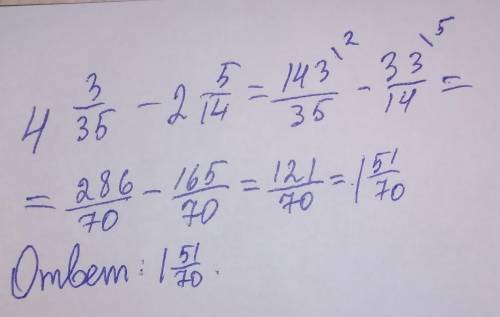 4 3/35 − 2 5/14 = 143/35 ^(\2) − 33/14 ^(\5) =
= 286/70 − 165/70 = 121/70 = 1 51/70
Ответ: 1 51/70.